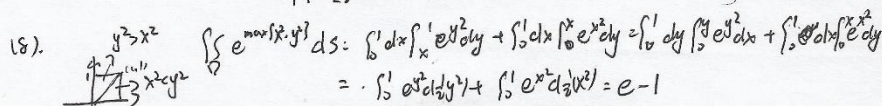 (8). y²>x² ∬_D e^{max{x²,y²}} ds = ∫₀¹dx∫ₓ¹e^{y²}dy + ∫₀¹dx∫₀ˣe^{x²}dy = ∫₀¹dy∫₀ʸe^{y²}dx + ∫₀¹dx∫₀ˣe^{x²}dy
(1,1) x²<y²
= ∫₀¹ e^{y²}d(½y²) + ∫₀¹ e^{x²}d½(x²) = e-1